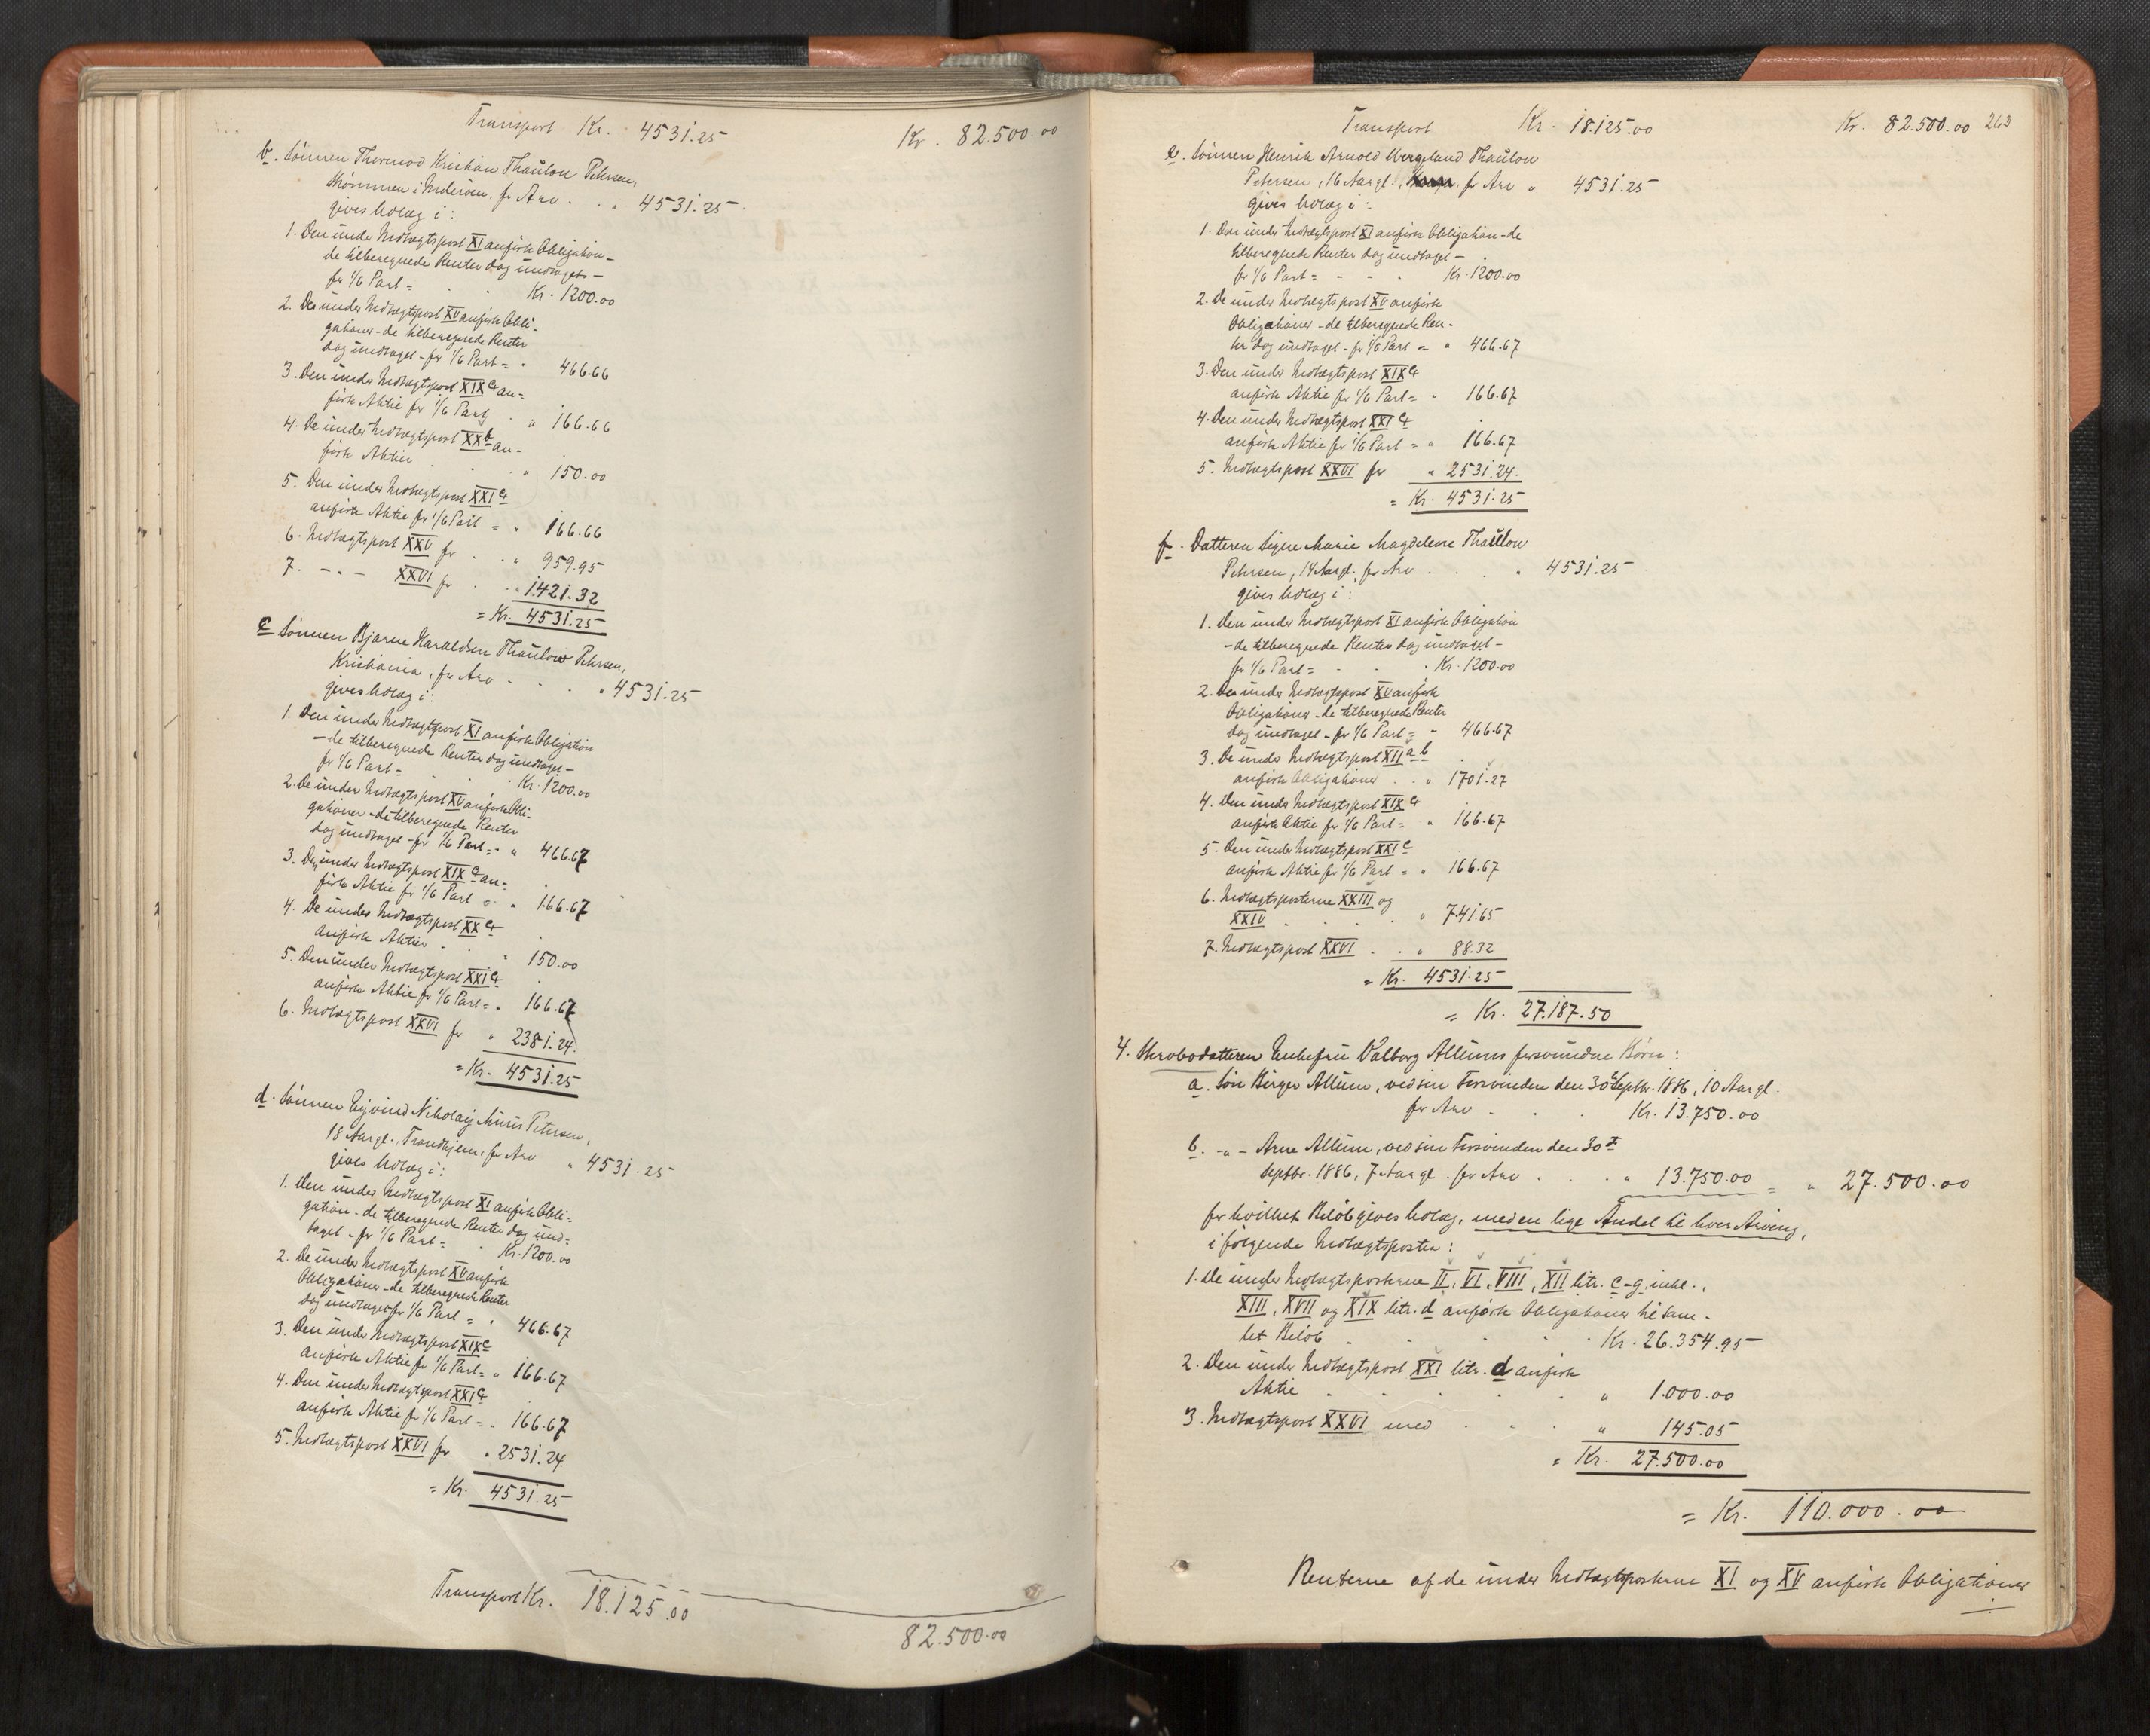 Transport Kr. 4531.25 Kr. 82.500.00
b. Sönnen Thormod Kristian Thaulow Petersen,
Strömmen i Inderöen, for Arv . . " 4531.25
gives Udlæg i:
1. Den under Indtægtspost XI anförte Obligation -
de tilberegnede Renter dog undtaget -
for 1/6 Part = . . Kr. 1200.00
2. De under Indtægtspost XV anförte Obli-
gationer - de tilberegnede Renter
dog undtaget - for 1/6 Part = " 466.66
3. Den under Indtægtspost XIX c an-
förte Aktie for 1/6 Part . " 166.66
4. De under Indtægtspost XX b an-
förte Aktier . . " 150.00
5. Den under Indtægtspost XXI c
anförte Aktie for 1/6 Part = " 166.66
6. Indtægtspost XXV for . . " 959.95
7. - " - XXVI for . . " 1421.32
= Kr. 4531.25
c. Sönnen Bjarne Haraldsen Thaulow Petersen,
Kristiania, for Arv . . . " 4531.25
gives Udlæg i:
1. Den under Indtægtspost XI anförte Obligation
- de tilberegnede Renter dog undtaget -
for 1/6 Part = . . Kr. 1200.00
2. De under Indtægtspost XV anförte Obli-
gationer - de tilberegnede Renter
dog undtaget - for 1/6 Part = " 466.67
3. Den under Indtægtspost XIX c an-
förte Aktie for 1/6 Part = " 166.67
4. De under Indtægtspost XX c
anförte Aktier . . " 150.00
5. Den under Indtægtspost XXI c
anförte Aktie for 1/6 Part = " 166.67
6. Indtægtspost XXVI for " 2381.24
= Kr. 4531.25
d. Sönnen Eyvind Nikolay Petersen,
18 Aar gl., Trondhjem, for Arv " 4531.25
gives Udlæg i:
1. Den under Indtægtspost XI anförte Obli-
gation - de tilberegnede Renter dog und-
taget - for 1/6 Part = . Kr. 1200.00
2. De under Indtægtspost XV anförte
Obligationer - de tilberegnede Renter
dog undtaget for 1/6 Part = " 466.67
3. Den under Indtægtspost XIX c
anförte Aktie for 1/6 Part = " 166.67
4. Den under Indtægtspost XXI c
anförte Aktie for 1/6 Part = " 166.67
5. Indtægtspost XXVI for " 2531.24
= Kr. 4531.25
Transport Kr. 18.125.00
82.500.00
Transport Kr. 18.125.00 Kr. 82.500.00 263
e. Sönnen Henrik Arnold Wergeland Thaulow
Petersen, 16 Aar gl., for Arv " 4531.25
gives Udlæg i:
1. Den under Indtægtspost XI anförte Obligation - de
tilberegnede Renter dog undtaget -
for 1/6 Part = . . Kr. 1200.00
2. De under Indtægtspost XV anförte
Obligationer - de tilberegnede Ren-
ter dog undtaget - for 1/6 Part = " 466.67
3. Den under Indtægtspost XIX c
anförte Aktie for 1/6 Part = " 166.67
4. Den under Indtægtspost XXI c
anförte Aktie for 1/6 Part = " 166.67
5. Indtægtspost XXVI for " 2531.24
= Kr. 4531.25
f. Datteren Signe Marie Magdelene Thaulow
Petersen, 14 Aar gl., for Arv . . . " 4531.25
gives Udlæg i:
1. Den under Indtægtspost XI anförte Obligation
- de tilberegnede Renter dog undtaget -
for 1/6 Part = . . Kr. 1200.00
2. De under Indtægtspost XV anförte
Obligationer - de tilberegnede Renter
dog undtaget - for 1/6 Part = " 466.67
3. De under Indtægtspost XII a b
anförte Obligationer . . " 1701.27
4. Den under Indtægtspost XIX c
anförte Aktie for 1/6 Part = " 166.67
5. Den under Indtægtspost XXI c
anförte Aktie for 1/6 Part = " 166.67
6. Indtægtsposterne XXIII og
XXIV . . . " 741.65
7. Indtægtspost XXVI . . " 88.32
= Kr. 4531.25
= Kr. 27.187.50
4. Enkefru Valborg Allums forsvundne Börn:
a. Sön Birger Allum, ved sin Forsvinden den 30te Septbr. 1886, 10 Aar gl.
for Arv . . . Kr. 13.750.00
b. - " - Arne Allum, ved sin Forsvinden den 30te
Septbr. 1886, 7 Aar gl. for Arv . . . " 13.750.00 = " 27.500.00
for hvilket Belöb gives Udlæg, med en lige Andel til hver Arving,
i fölgende Indtægtsposter:
1. De under Indtægtsposterne II, VI, VIII, XII litr. c-g inkl.,
XIII, XVII og XIX litr. d anförte Obligationer til sam-
let Belöb . . . Kr. 26.354.95
2. Den under Indtægtspost XXI litr. d anförte
Aktie . . . . " 1.000.00
3. Indtægtspost XXVI med . . . " 145.05
= Kr. 27.500.00
= Kr. 110.000.00
Renterne af de under Indtægtsposterne XI og XV anförte Obligationer